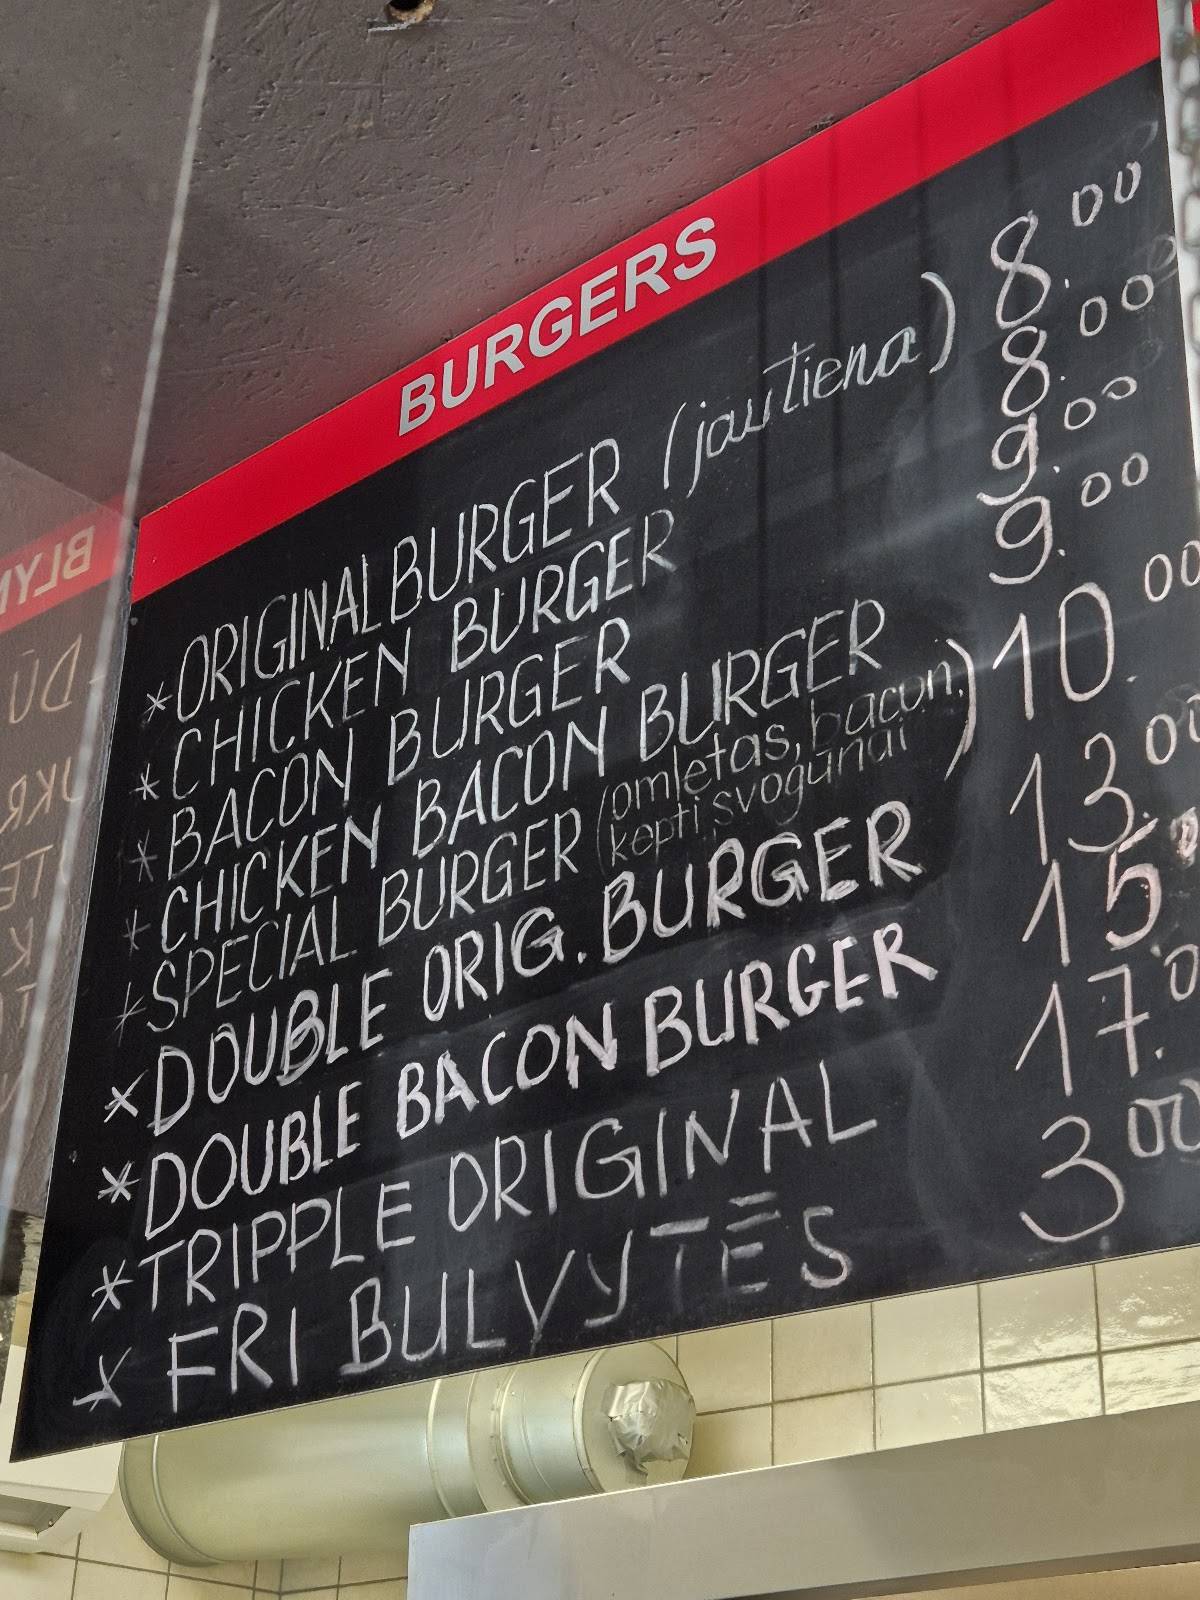 BURGERS
*ORIGINAL BURGER (jautiena) 8.00
*CHICKEN BURGER 8.00
*BACON BURGER 9.00
*CHICKEN BACON BURGER 9.00
*SPECIAL BURGER (omletas, bacon, kepti svogūnai) 10.00
*DOUBLE ORIG. BURGER 13.00
*DOUBLE BACON BURGER 15.00
*TRIPPLE ORIGINAL 17.0
*FRI BULVYTĖS 3.00